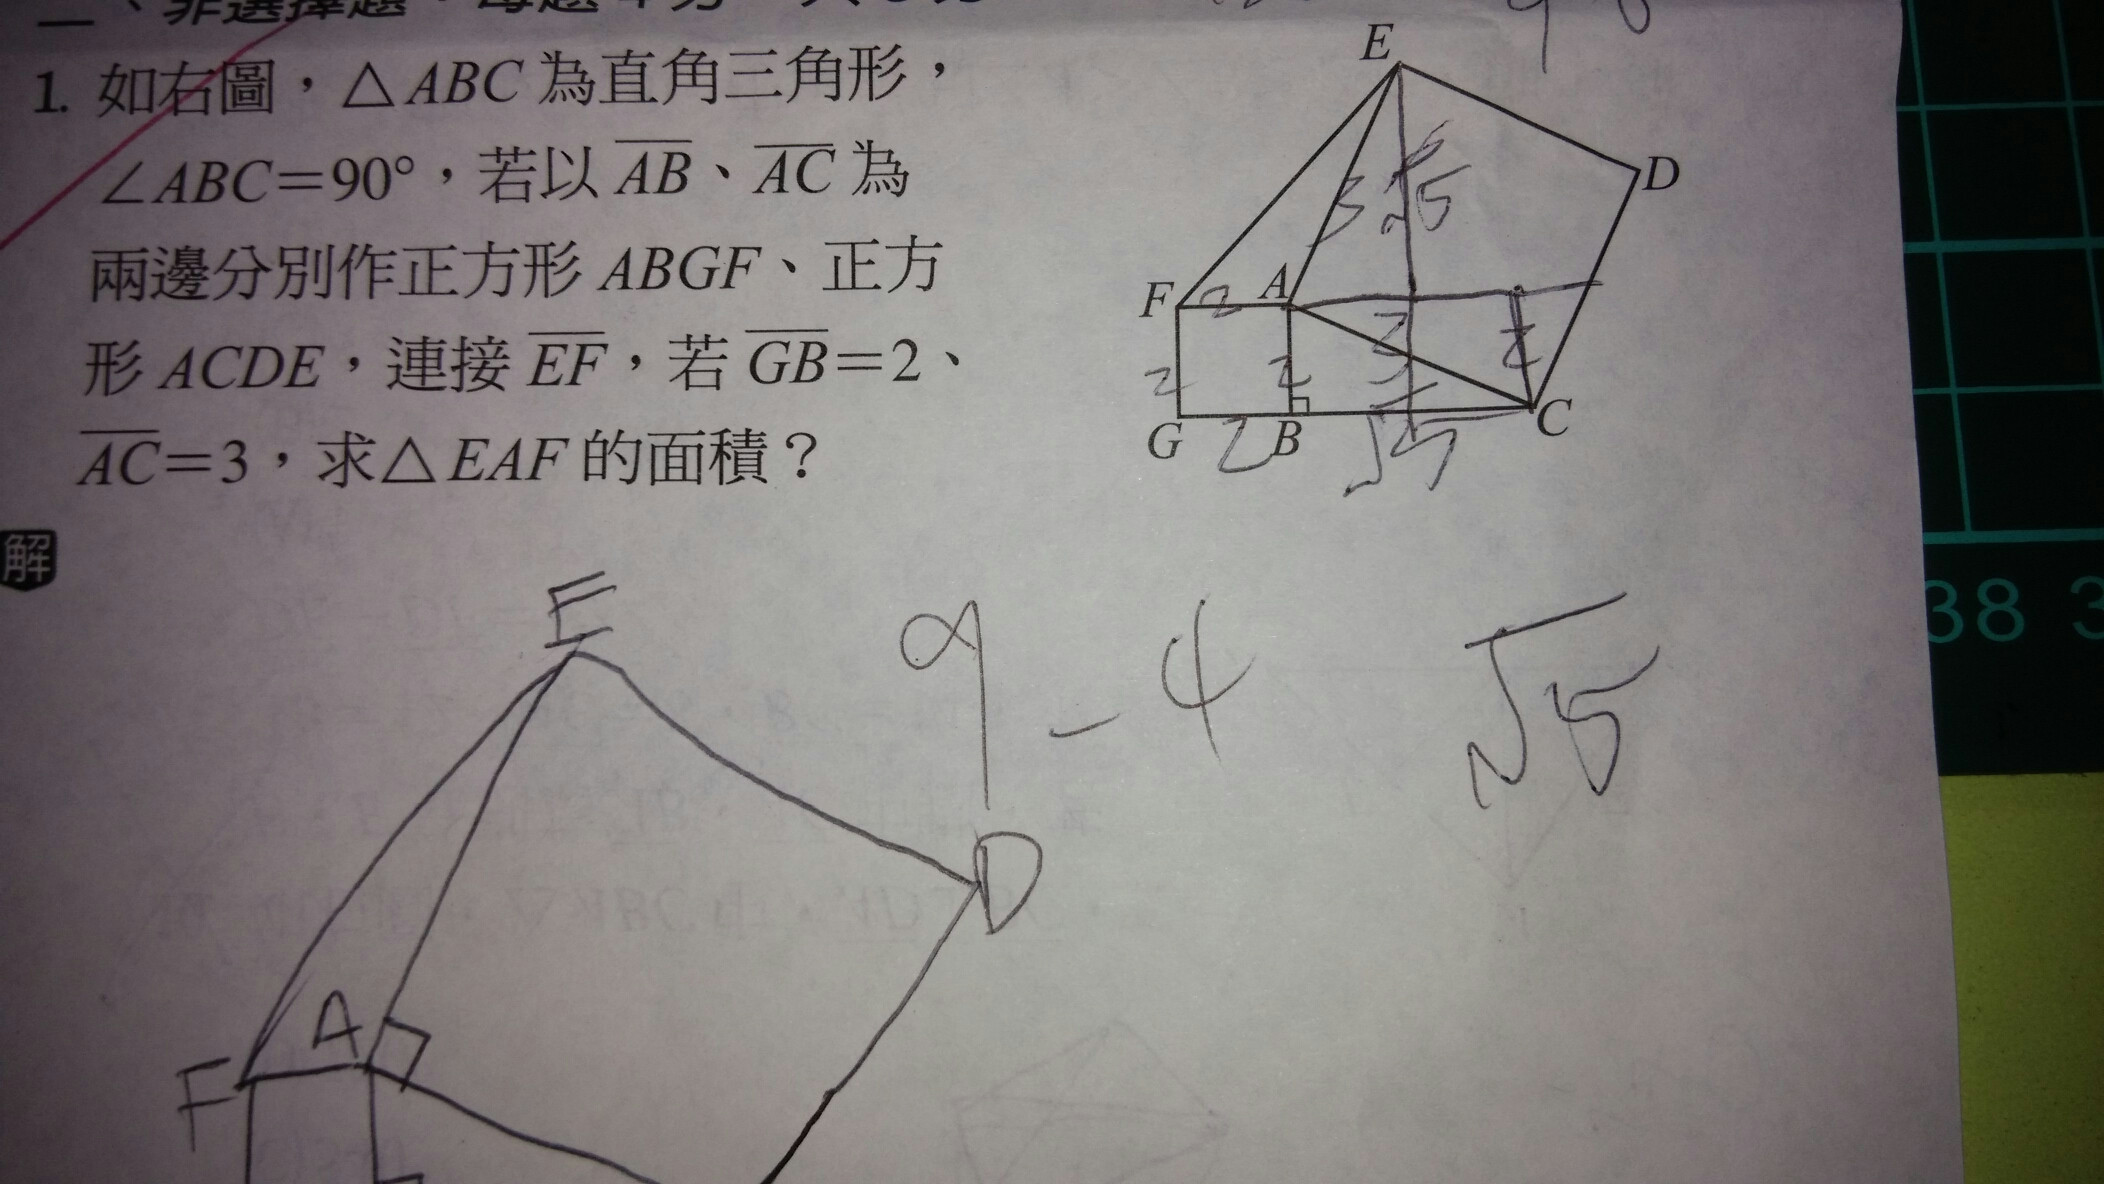 二、非選擇題：每題4分，共8分
1. 如右圖，△ABC 為直角三角形，
∠ABC=90°，若以 AB、AC 為
兩邊分別作正方形 ABGF、正方
形 ACDE，連接 EF，若 GB=2、
AC=3，求△EAF 的面積？
E
D
3
√5
F 2 A
2
2
3
2
G 2 B
√5
C
解
E
9 - 4
√5
D
A
F
38 3